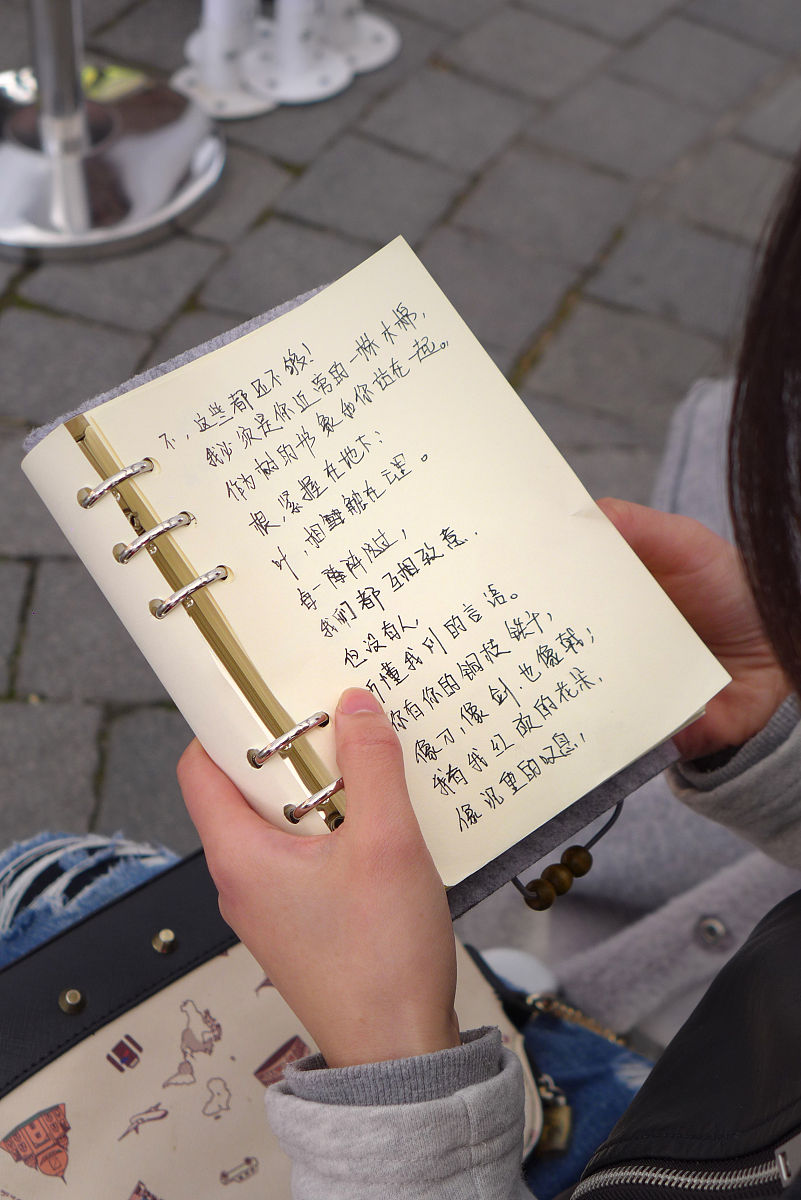 不，这些都还不够！
我必须是你近旁的一株木棉，
作为树的形象和你站在一起。
根，紧握在地下；
叶，相触在云里。
每一阵风过，
我们都互相致意，
但没有人，
听懂我们的言语。
你有你的铜枝铁干，
像刀，像剑，也像戟；
我有我红硕的花朵，
像沉重的叹息，